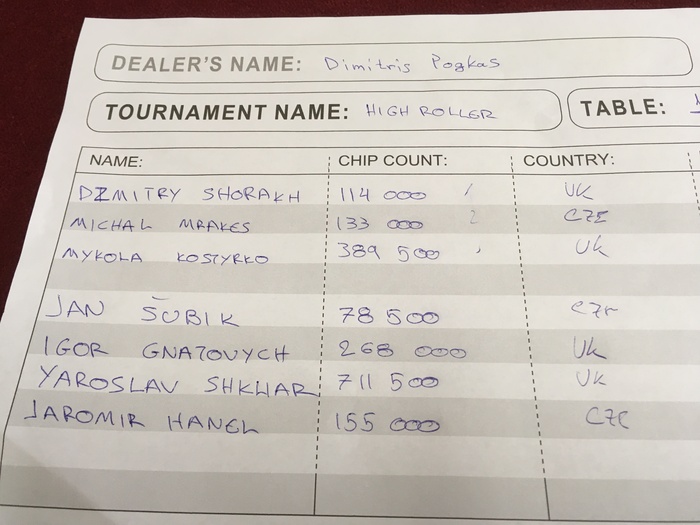 DEALER'S NAME: Dimitris Pogkas
TOURNAMENT NAME: HIGH ROLLER TABLE:
NAME: CHIP COUNT: COUNTRY:
DZMITRY SHORAKH 114 000 1 UK
MICHAL MRAKES 133 000 2 CZE
MYKOLA KOSTYRKO 389 500 UK
JAN ŠUBIK 78 500 CZR
IGOR GNATOVYCH 268 000 UK
YAROSLAV SHKLIAR 711 500 UK
JAROMIR HANEL 155 000 CZE